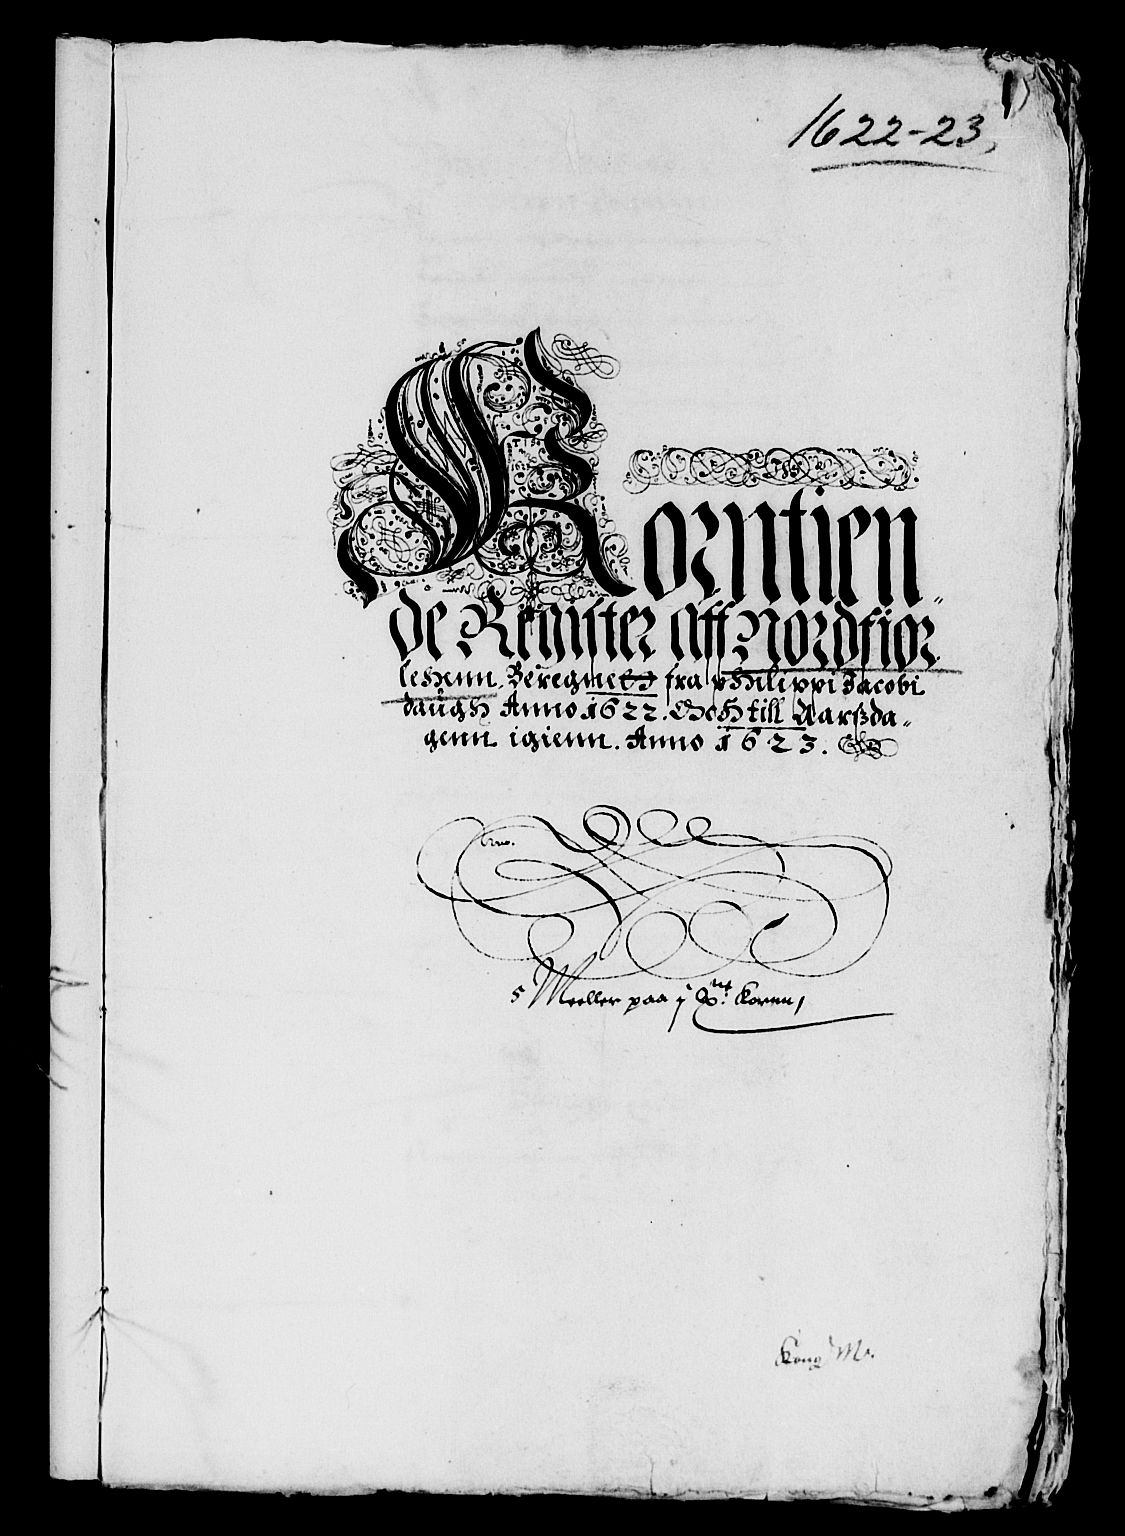 1622-23,
Korntien„
de Register aff Nordfior
lehenn. Beregnett fra philippi Jacobi
daugh Anno 1622. Och till Aarßda„
genn igienn. Anno 1623.
5 Meeller paa j Kornn
Kong M.